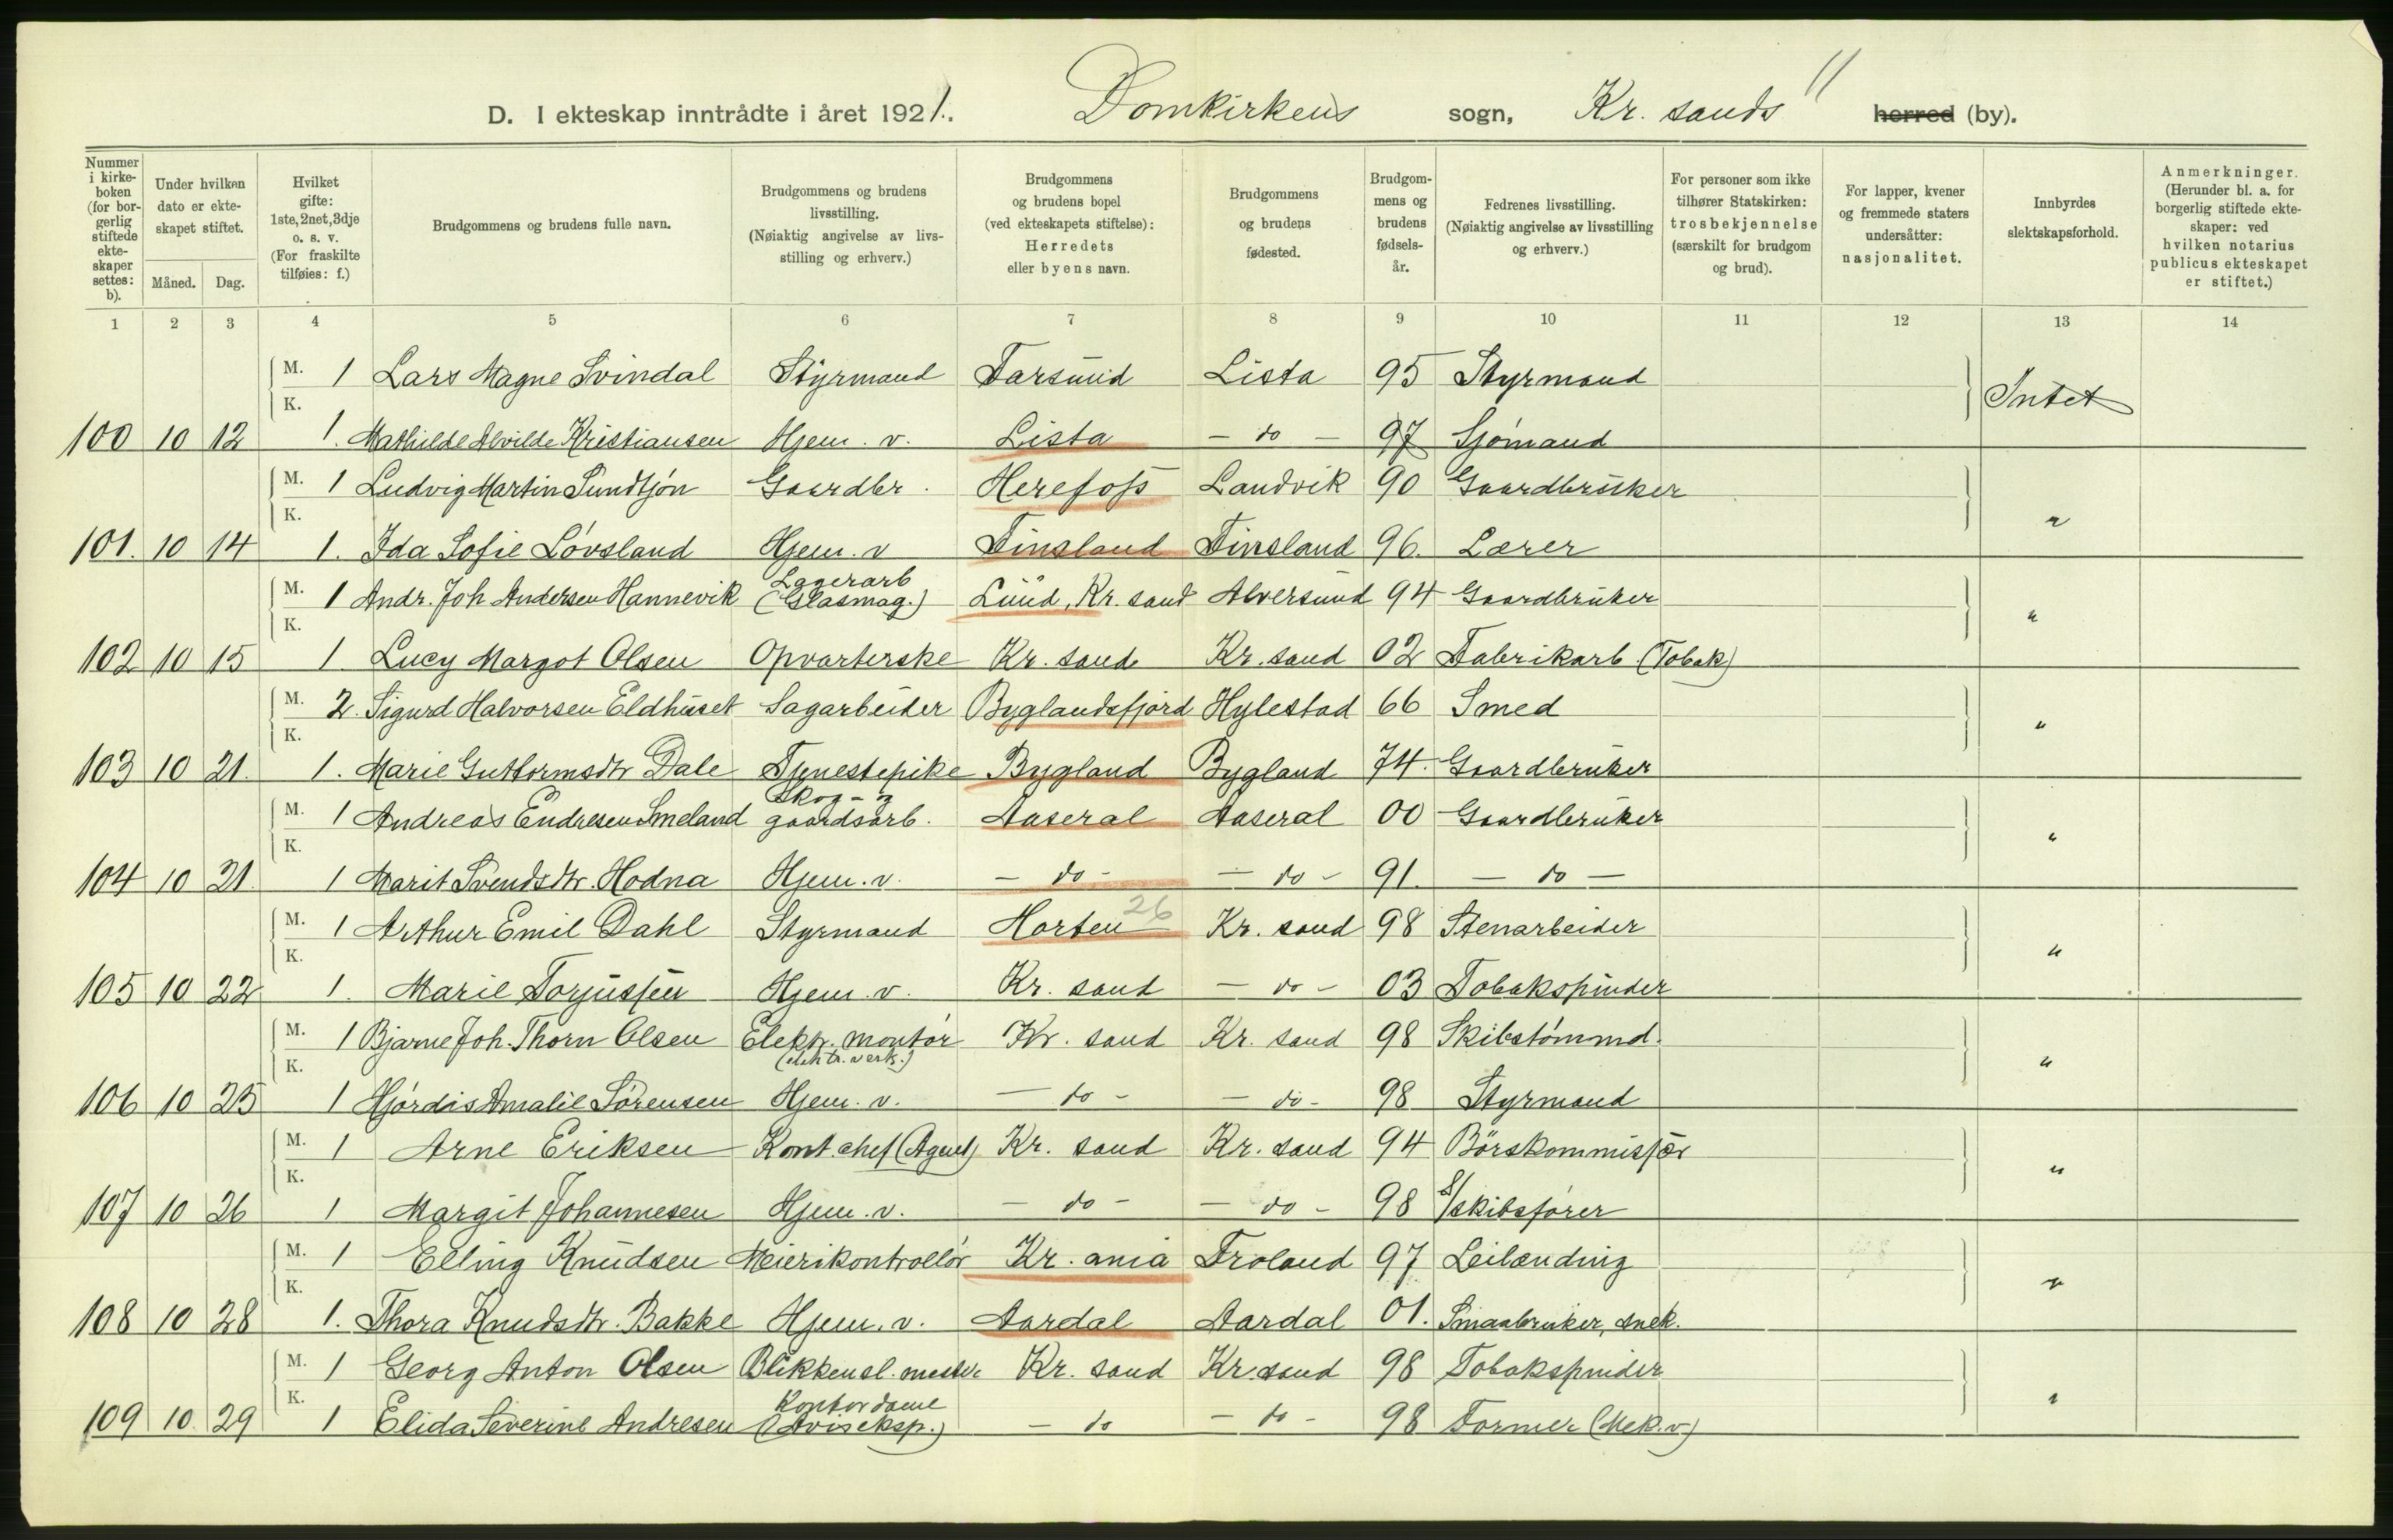 D. I ekteskap inntrådte i året 1921. Domkirkens sogn, Kr. sands herred (by). 11
Nummer i kirkeboken (for borgerlig stiftede ekteskaper settes: b).
Under hvilken dato er ekteskapet stiftet.
Måned. Dag.
Hvilket gifte: 1ste, 2net, 3dje o. s. v. (For fraskilte tilføies: f.)
Brudgommens og brudens fulle navn.
Brudgommens og brudens livsstilling. (Nøiaktig angivelse av livsstilling og erhverv.)
Brudgommens og brudens bopel (ved ekteskapets stiftelse): Herredets eller byens navn.
Brudgommens og brudens fødested.
Brudgommens og brudens fødselsår.
Fedrenes livsstilling. (Nøiaktig angivelse av livsstilling og erhverv.)
For personer som ikke tilhører Statskirken: trosbekjennelse (særskilt for brudgom og brud).
For lapper, kvener og fremmede staters undersåtter: nasjonalitet.
Innbyrdes slektskapsforhold.
Anmerkninger. (Herunder bl. a. for borgerlig stiftede ekteskaper: ved hvilken notarius publicus ekteskapet er stiftet.)
1 2 3 4 5 6 7 8 9 10 11 12 13 14
M. 1 Lars Magne Svindal Styrmand Farsund Lista 95 Styrmand Intet
K.
100 10 12 1. Mathilde Alvilde Kristiansen Hjem. v. Lista – do – 97 Sjømand
M. 1 Ludvig Martin Sundtjøn Gaardbr. Herefoss Landvik 90 Gaardbruker "
K.
101. 10 14 1. Ida Sofie Løvsland Hjem. v Finsland Finsland 96. Lærer
M. 1 Andr. Joh Andersen Hannevik Lagerarb (Glasmag.) Lund, Kr. sand Alversund 94 Gaardbruker "
K.
102 10 15 1 Lucy Margot Olsen Opvarterske Kr. sand Kr. sand 02 Fabrikarb. (Tobak)
M. 2. Sigurd Halvorsen Eldhuset Sagarbeider Byglandsfjord Hylestad 66 Smed "
K.
103 10 21. 1. Marie Guttormsdtr Dale Tjenestepike Bygland Bygland 74. Gaardbruker
M. 1 Andreas Endresen Smeland Skog- og gaardsarb. Aaseral Aaseral 00 Gaardbruker "
K.
104 10 21. 1 Marit Svendsdtr. Hodna Hjem. v. – do – – do – 91. – do –
M. 1 Arthur Emil Dahl Styrmand Horten 26 Kr. sand 98 Stenarbeider "
K.
105 10 22 1. Marie Torjussen Hjem. v. Kr. sand – do – 03 Tobakspinder
M. 1 Bjarne Joh. Thorn Olsen Elektr. montør (elektr. verk.) Kr. sand Kr. sand 98 Skibstømmd. "
K.
106 10 25 1 Hjørdis Amalie Sørensen Hjem. v. – do – – do – 98 Styrmand
M. 1 Arne Eriksen Kont. chef (Agent) Kr. sand Kr. sand 94 Børskommissær "
K.
107 10 26 1 Margit Johannesen Hjem. v. – do – – do – 98 S/skibsfører
M. 1 Elling Knudsen Meierikontrollør Kr. ania Froland 97 Leilænding "
K.
108 10 28 1. Thora Knudsdtr. Bakke Hjem. v. Aardal Aardal 01. Smaabruker, snek.
M. 1 Georg Anton Olsen Blikkensl. mester Kr. sand Kr. sand 98 Tobakspinder "
K.
109 10 29 1 Elida Severine Andresen Kontordame (Aviseksp.) – do – do – 98 Former (Mek. v.)